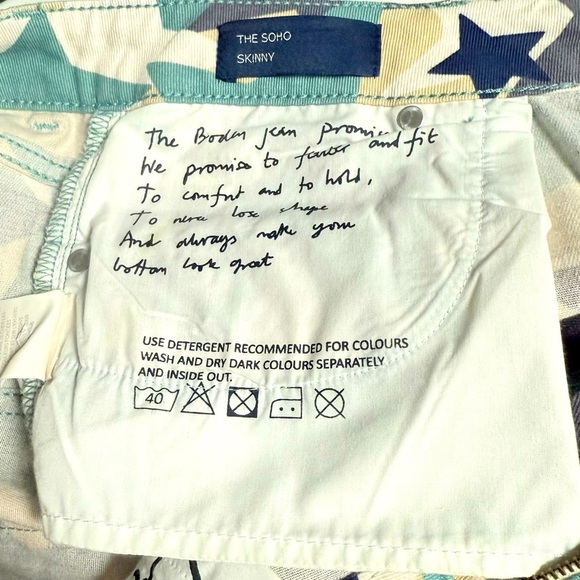 THE SOHO
SKINNY
The Boden jean promise
We promise to flatter and fit
To comfort and to hold,
To never lose shape
And always make your
bottom look great
USE DETERGENT RECOMMENDED FOR COLOURS
WASH AND DRY DARK COLOURS SEPARATELY
AND INSIDE OUT.
40